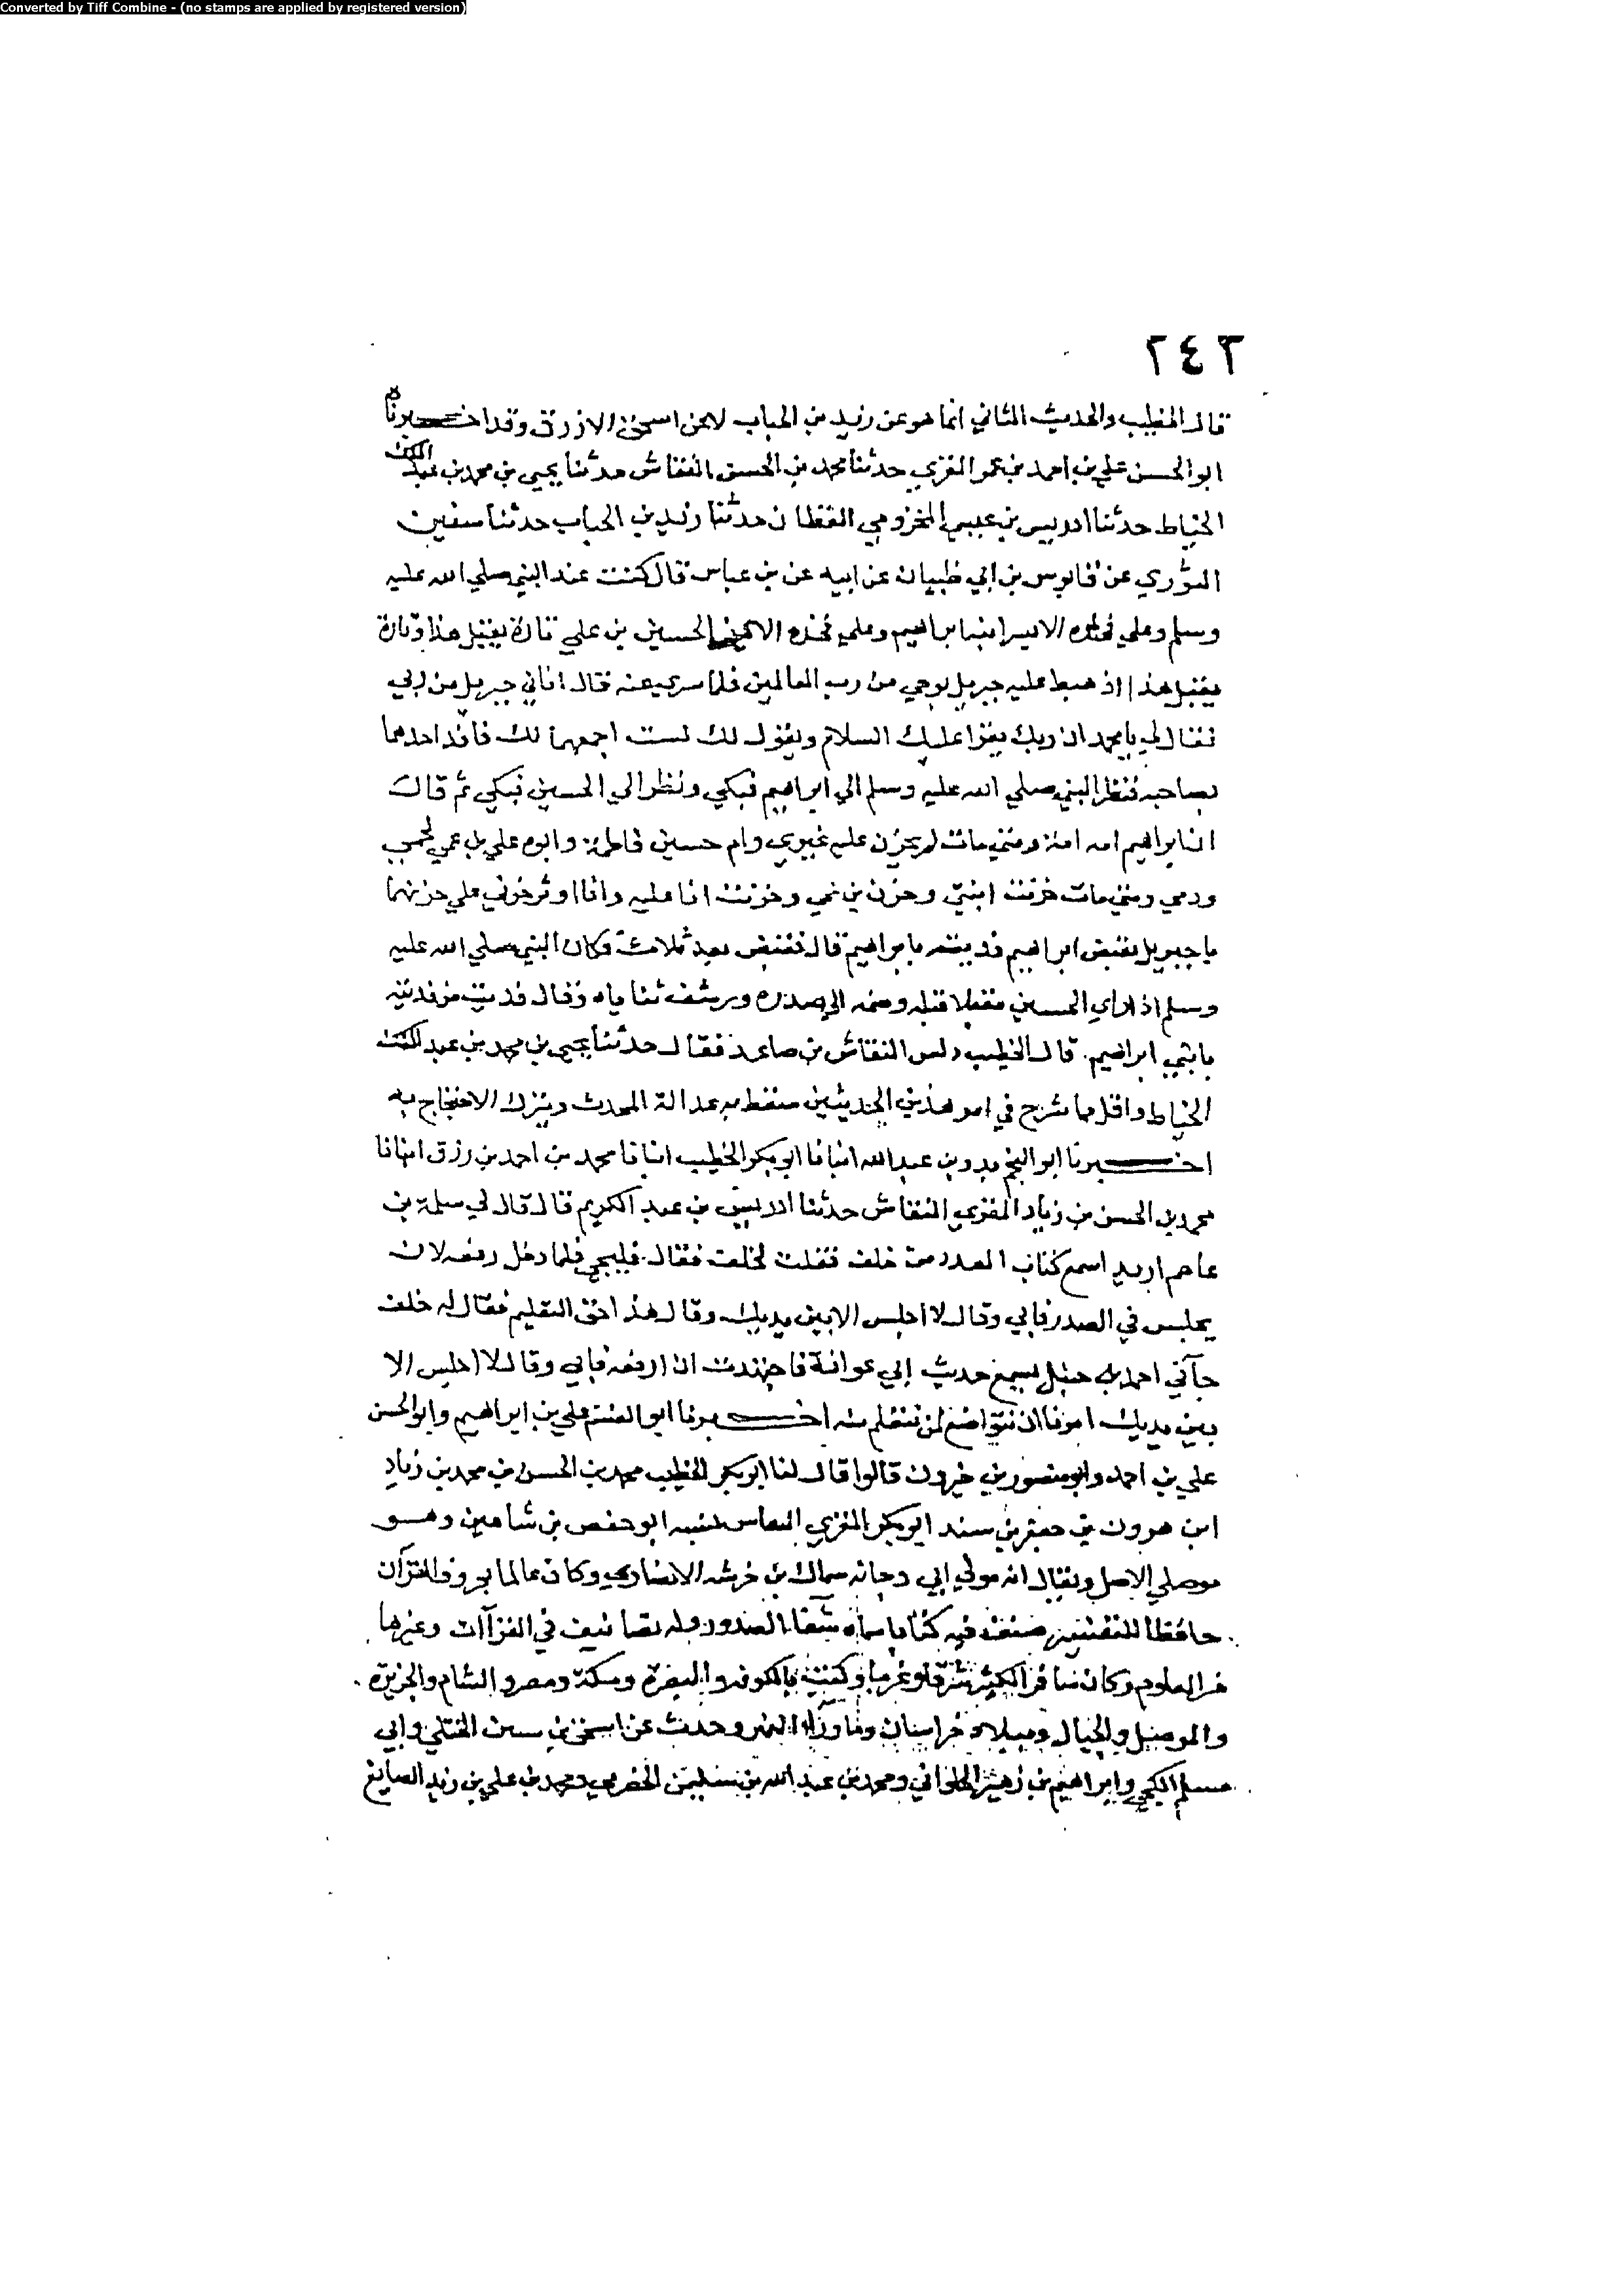 Converted by Tiff Combine - (no stamps are applied by registered version)
٢٤٣
قال الخطيب والحديث الثاني انما هو عن زيد بن الحباب لا عن اسحق الازرق وقد اخبرناه
ابو الحسن علي بن احمد بن عمر المقري حدثنا محمد بن الحسن النقاش حدثنا يحيى بن محمد بن عبد الملك
الخياط حدثنا ادريس بن عيسى المخزومي القطان حدثنا زيد بن الحباب حدثنا سفين
الثوري عن قابوس بن ابي ظبيان عن ابيه عن بن عباس قال كنت عند النبي صلي الله عليه
وسلم وعلي فخذه الايسر ابنه ابراهيم وعلي فخذه الايمن الحسين بن علي تارة يقبل هذا وتارة
يقبل هذا اذ هبط عليه جبريل بوحي من رب العالمين فلما سري عنه قال اتاني جبريل من ربي
فقال لي يا محمد ان ربك يقرا عليك السلام ويقول لك لست اجمعهما لك فافد احدهما
بصاحبه فنظر النبي صلي الله عليه وسلم الي ابراهيم فبكي ونظر الي الحسين فبكي ثم قال
ان ابراهيم امه امة ومتي مات لم يحزن عليه غيري وام حسين فاطمة وابوه علي بن عمي لحمي
ودمي ومتي مات حزنت ابنتي وحزن بن عمي وحزنت انا عليه وانا اوثر حزني علي حزنهما
يا جبريل يقبض ابراهيم فديته بابراهيم قال فقبض بعد ثلاث فكان النبي صلي الله عليه
وسلم اذا راي الحسين مقبلا قبله وضمه الي صدره ورشف ثناياه وقال فديت من فديته
بابني ابراهيم قال الخطيب دلس النقاش بن صاعد فقال حدثنا يحيى بن محمد بن عبد الملك
الخياط واقل مما شرح في امر هذين الحديثين سقط به عدالة المحدث ويترك الاحتجاج به
اخبرنا ابو النجم بدر بن عبد الله انبانا ابو بكر الخطيب انبانا محمد بن احمد بن رزق انبانا
محمد بن الحسن بن زياد المقري النقاش حدثنا ادريس بن عبد الكريم قال قال لي سلمة بن
عاصم اريد اسمع كتاب العدد من خلف فقلت لخلف فقال فليجي فلما دخل رفعه لان
يجلس في الصدر فابي وقال لا اجلس الا بين يديك وقال هذا حق التعليم فقال له خلف
جآني احمد بن حنبل يسمع حديث ابي عوانة فاجتهدت ان ارفعه فابي وقال لا اجلس الا
بين يديك امرنا ان نتواضع لمن نتعلم منه اخبرنا ابو القسم علي بن ابراهيم وابو الحسن
علي بن احمد وابو منصور بن خيرون قالوا قال لنا ابو بكر الخطيب محمد بن الحسن بن محمد بن زياد
ابن هرون بن جعفر بن سند ابو بكر المقري النقاش نسبه ابو حفص بن شاهين وهو
موصلي الاصل ويقال انه مولي ابي دجانه سماك بن خرشه الانصاري وكان عالما بحروف القرآن
حافظا للتفسير صنف فيه كتابا سماه شفا الصدور وله تصانيف في القراآت وغيرها
من العلوم وكان سافر الكثير شرقا وغربا وكتب بالكوفه والبصرة ومكة ومصر والشام والجزيرة
والموصل والجبال وببلاد خراسان وما وراء النهر وحدث عن اسحق بن سنين الختلي وابي
مسلم الكجي وابراهيم بن زهير الحلواني ومحمد بن عبد الله بن سليمن الحضرمي ومحمد بن علي بن زيد الصايغ